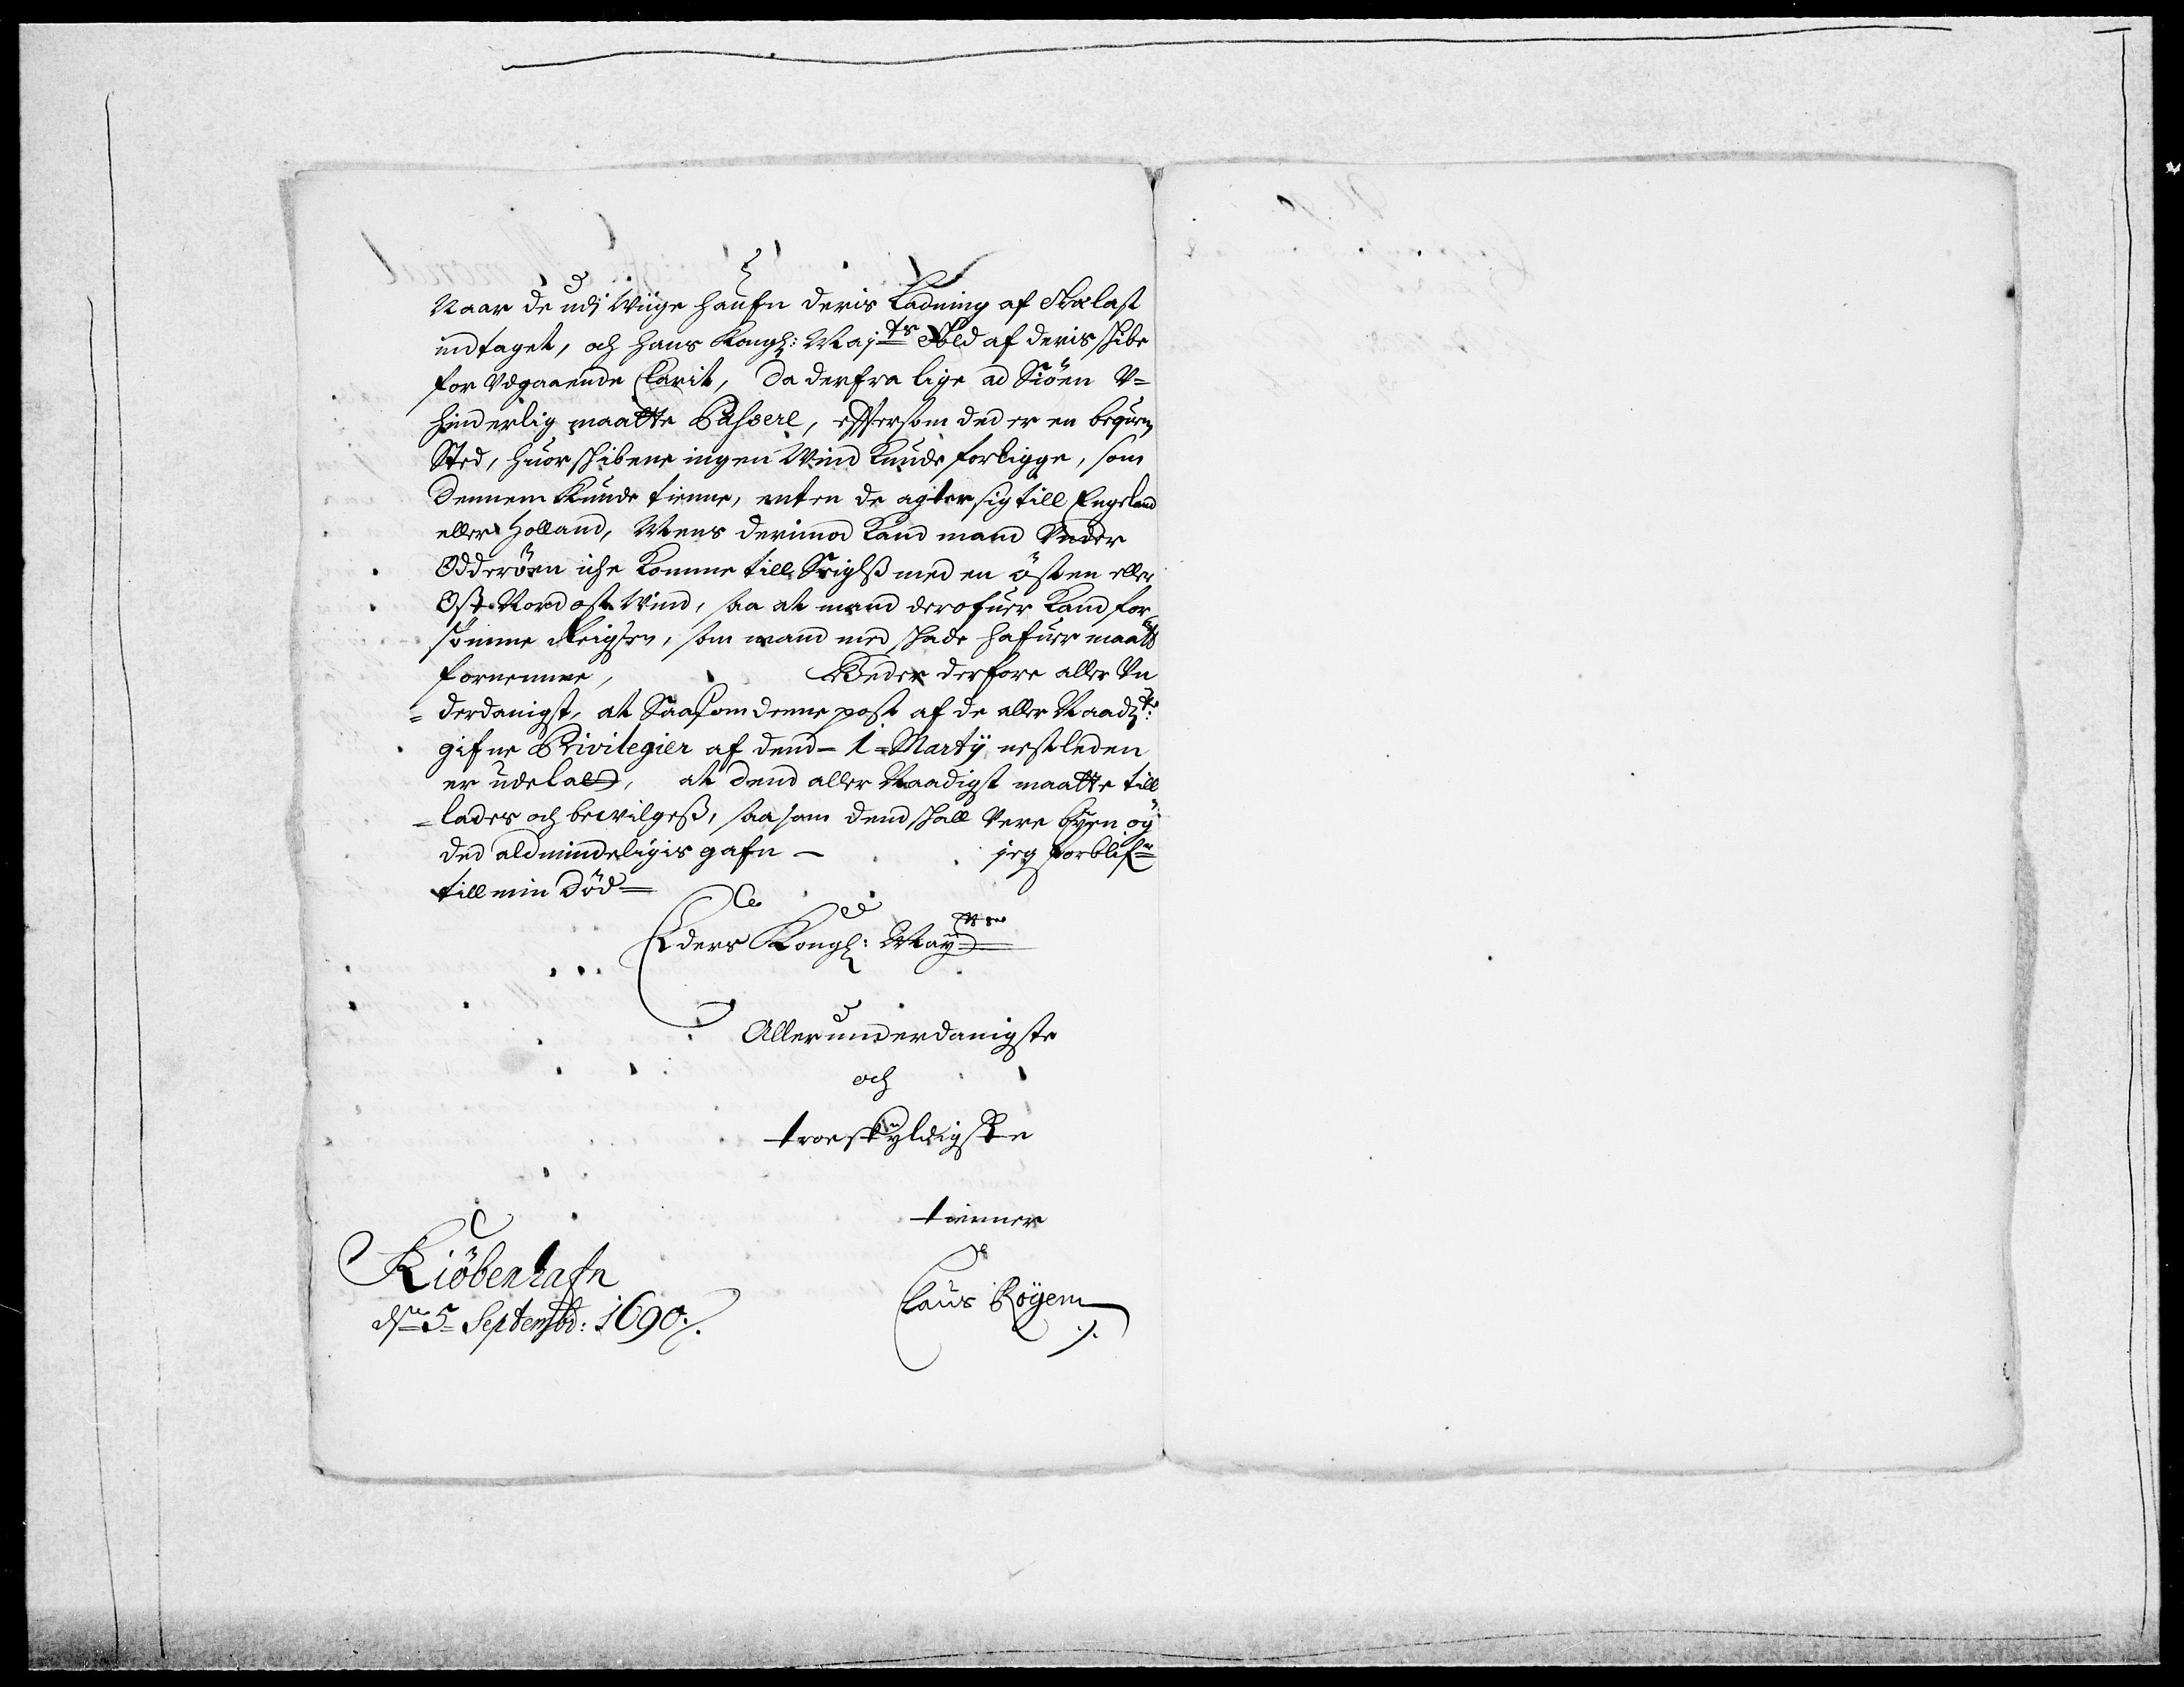 Naar de udj Wiige haufn deris Ladning af Trælast
indtaget, och hans Kongl: Maj:ts Told af deris skibe
for Udgaaende Clarit, da derfra lige ad Siöen V=
hinderlig maatte Passere, effersom ded er en beqvem
Sted, huor skibene ingen Wind kunde forligge, som
dennem kunde tienne, enten de agter sig till Engeland
eller Holland, Mens derimod kand mand Vnder
Odderöen iche komme till Seigls med en östen eller
Ost Nordost Wind, saa at mand derofuer kand for=
sömme Reigsen, som mand med skade hafuer maatt
fornemme, Beder derfore aller Vn
=derdanigst, at Saasom denne post af de aller Naadigst:
gifne Privilegier af dend 1 Martÿ nestleden
er udelatt, at dend aller Naadigst maatte till
=lades och bewilges, saasom dend skall Vere Byen og
ded aldmindeligis gafn jeg forblifr
till min Död
Eders Kongl: May:ts
Allerunderdanigste
och
troeskyldigste
tienner
Kiöbenhafn
dn 5 Septembr: 1690.
Claus Röyem